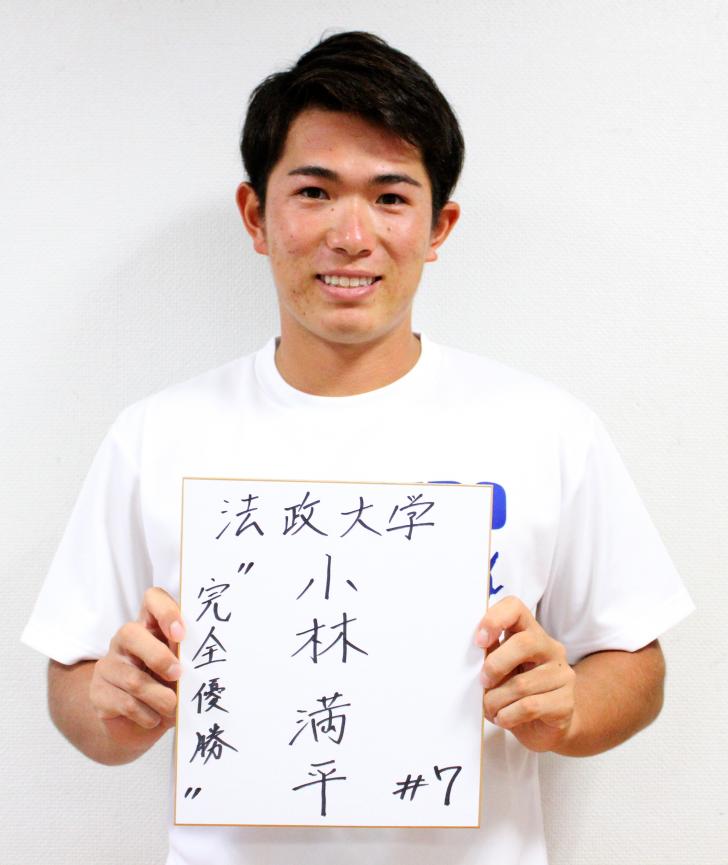 法政大学
小林 満平
#7
"完全優勝"